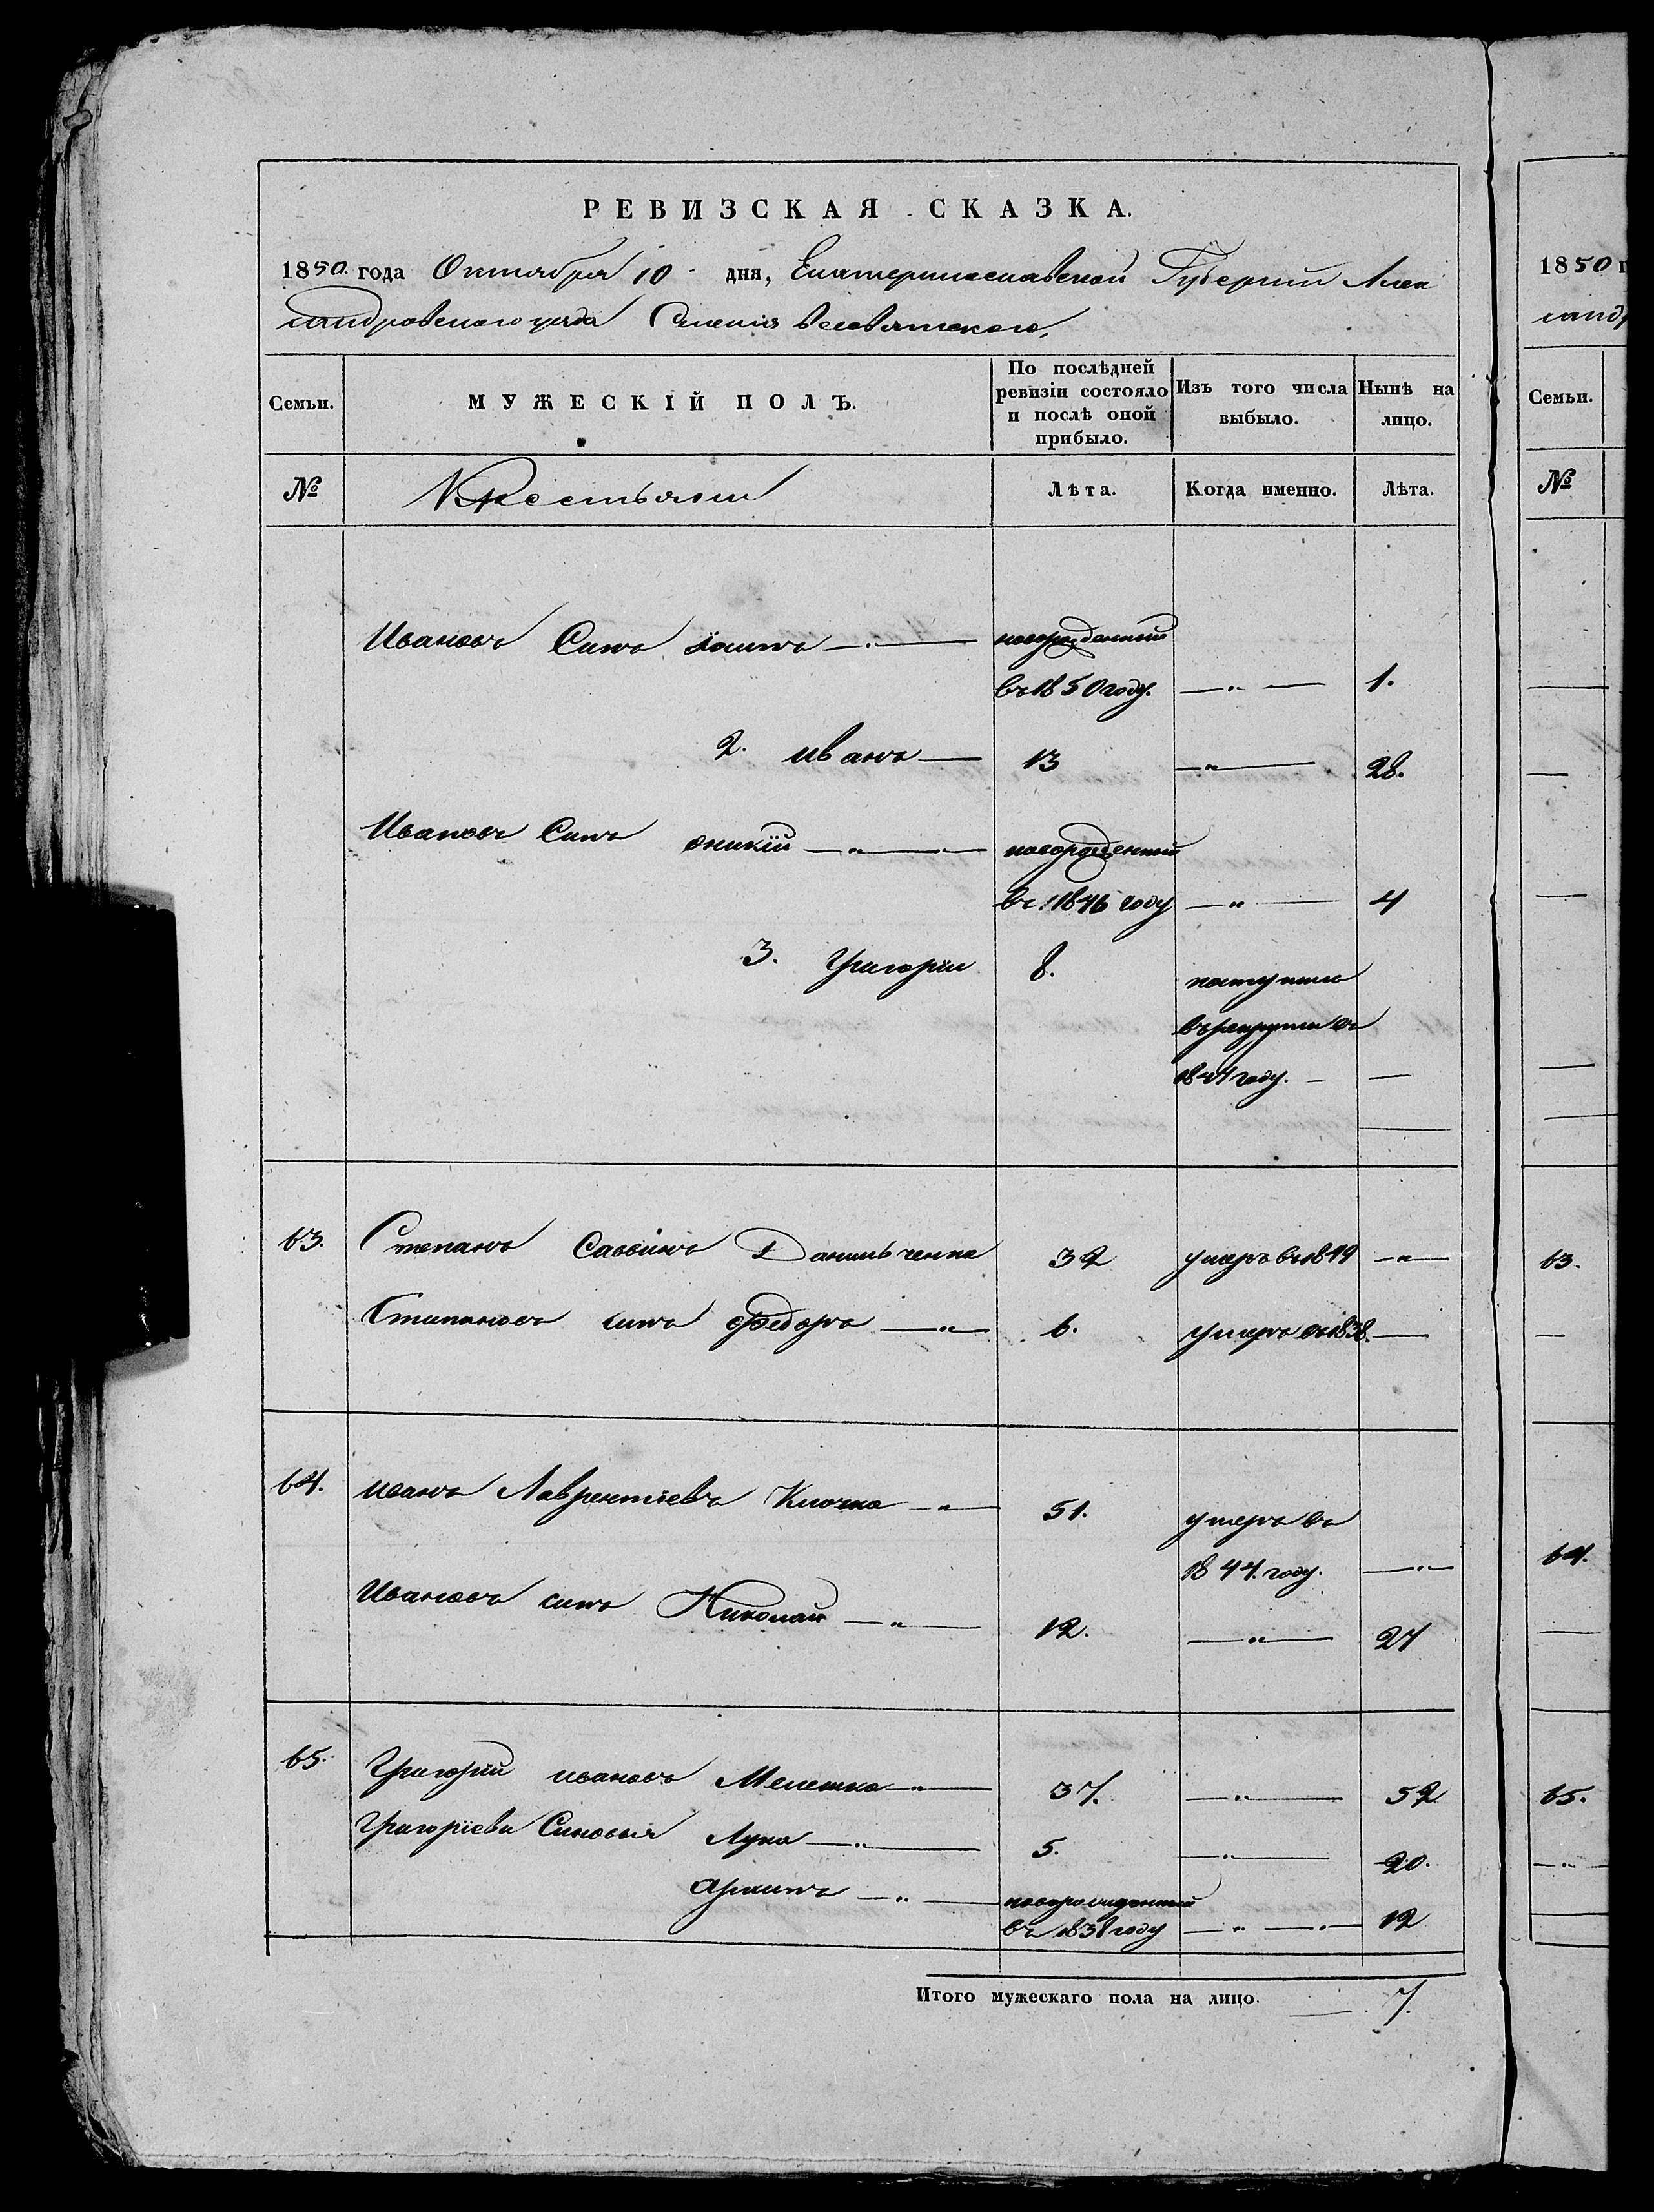 РЕВИЗСКАЯ СКАЗКА.
1850. года Октября 10 дня, Екатеринославской Губернии Алек
сандровского уезда Селения
Семьи.
МУЖЕСКІЙ ПОЛЪ.
По послѣдней ревизіи состояло и послѣ оной прибыло.
Изъ того числа выбыло.
Нынѣ на лицо.
№
Крестьяни
Лѣта.
Когда именно.
Лѣта.
Ивановъ Синъ новорожденный
въ 1850 году. —„— 1.
2. Иванъ — 13 —„— 28.
Ивановъ Синъ оникій —„— новорожденный
въ 1846 году —„— 4
3. Григоріи 8. поступилъ
въ рекруты въ
году. — —
63. Степанъ Саввинъ Данильченко 32 умеръ въ 1849 —„—
Степановъ синъ Федоръ —„— 6. умеръ въ 1838. —
64. Иванъ Лаврентіевъ Клочко —„— 51. умеръ въ
1844. году. —„—
Ивановъ синъ Николай —„— 12. —„— 27
65. Григорій Ивановъ Мелешко —„— 37. —„— 52
Григоріеви Синовья Лука —„— 5. —„— 20.
—„— новорожденный
въ 1838 году —„— 12
Итого мужескаго пола на лицо. 7.
1850 г
санд
Семьи.
№
63.
64.
65.